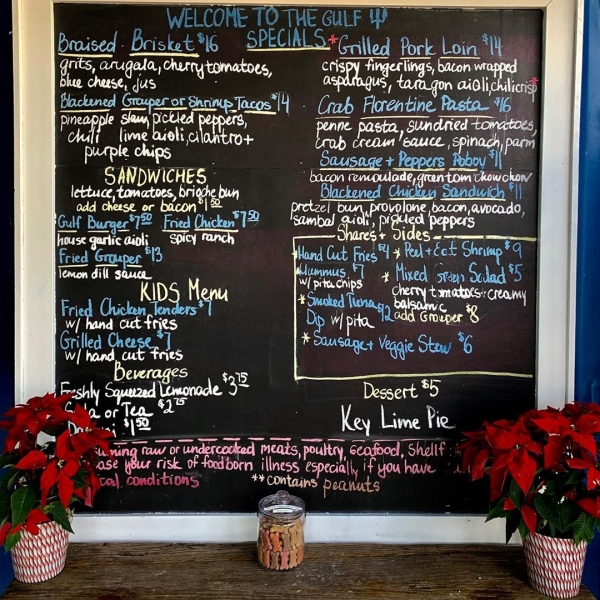 WELCOME TO THE GULF
SPECIALS
Braised Brisket $16
grits, arugala, cherry tomatoes,
blue cheese, jus
Blackened Grouper or Shrimp Tacos $14
pineapple slaw, pickled peppers,
chili lime aioli, cilantro +
purple chips
*Grilled Pork Loin $14
crispy fingerlings, bacon wrapped
asparagus, taragon aioli, chili crisp*
Crab Florentine Pasta $16
penne pasta, sundried tomatoes,
crab cream sauce, spinach, parm
Sausage + Peppers Poboy $11
bacon remoulade, green tom chow chow
Blackened Chicken Sandwich $11
pretzel bun, provolone, bacon, avocado,
sambal aioli, pickled peppers
SANDWICHES
lettuce, tomatoes, brioche bun
add cheese or bacon $1.50
Gulf Burger $7.50
house garlic aioli
Fried Chicken $7.50
spicy ranch
Fried Grouper $13
lemon dill sauce
KIDS Menu
Fried Chicken Tenders $7
w/ hand cut fries
Grilled Cheese $7
w/ hand cut fries
Beverages
Freshly Squeezed Lemonade $3.75
or Tea $2.75
$1.50
Shares + Sides
*Hand Cut Fries $4
*Hummus $7
w/ pita chips
*Smoked Tuna $12
Dip w/ pita
*Sausage + Veggie Stew $6
*Peel + Eat Shrimp $9
*Mixed Green Salad $5
cherry tomatoes + creamy
balsamic
add Grouper $8
Dessert $5
Key Lime Pie
raw or undercooked meats, poultry, seafood,
your risk of foodborn illness especially if you have
conditions
**contains peanuts